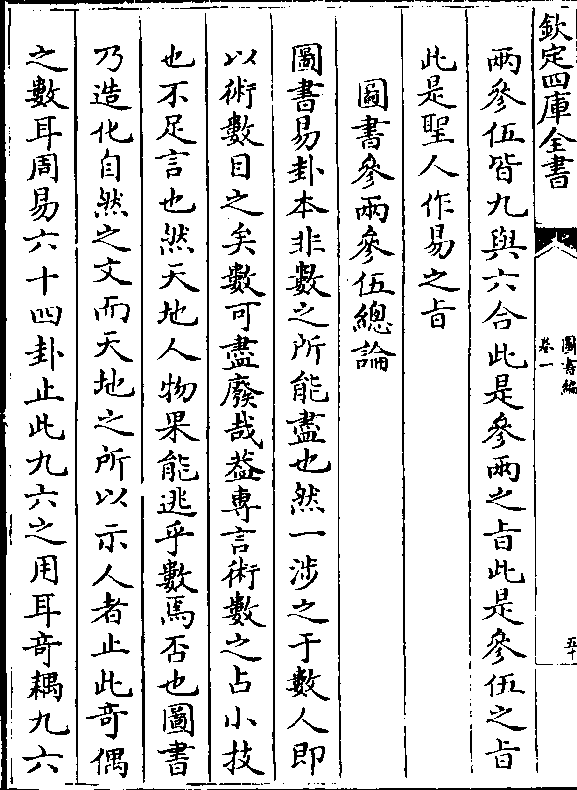 欽定四庫全書
圖書編
卷一
五十
兩參伍皆九與六合此是參兩之㫖此是參伍之㫖
此是聖人作易之㫖
圖書參兩參伍總論
圖書易卦本非數之所能盡也然一涉之于數人即
以術數目之矣數可盡廢哉葢專言術數之占小技
也不足言也然天地人物果能逃乎數焉否也圖書
乃造化自然之文而天地之所以示人者止此竒偶
之數耳周易六十四卦止此九六之用耳竒耦九六